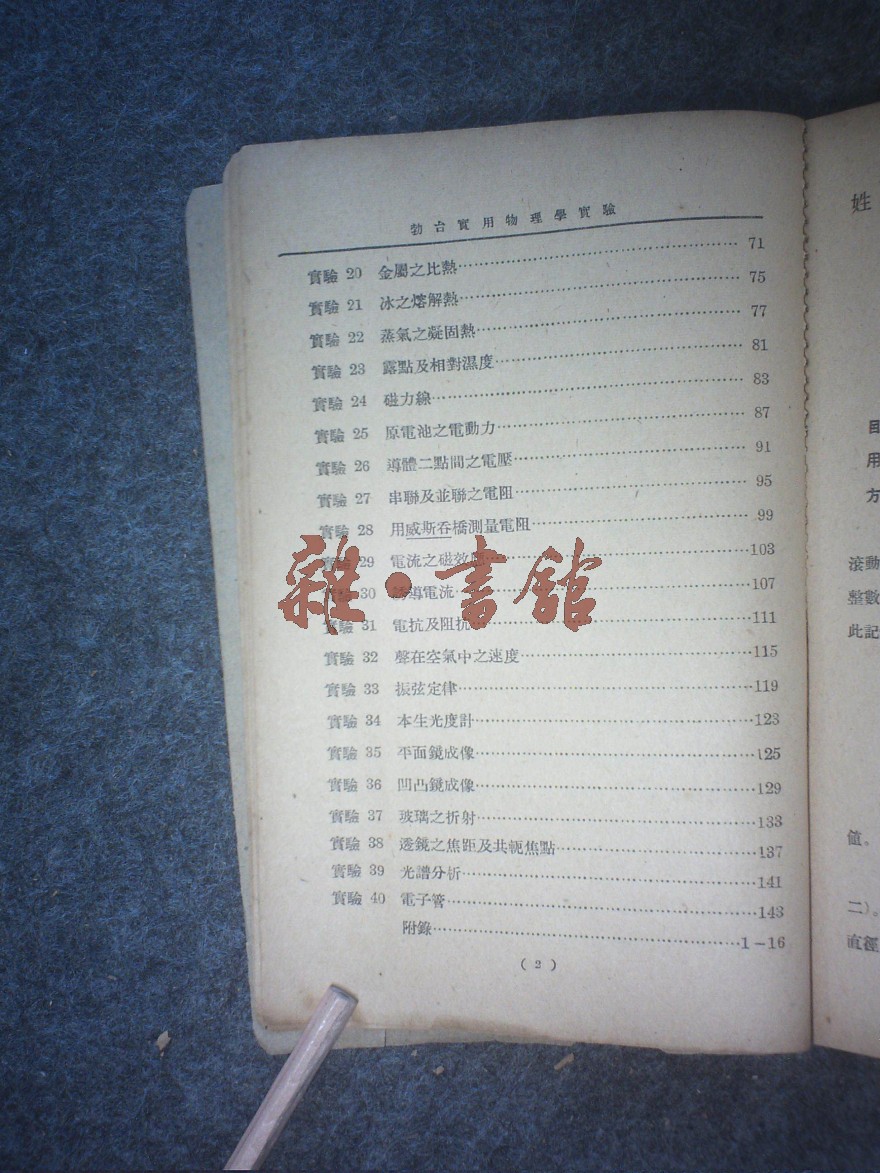 勃台實用物理學實驗
實驗 20 金屬之比熱 71
實驗 21 冰之熔解熱 75
實驗 22 蒸氣之凝固熱 77
實驗 23 露點及相對濕度 81
實驗 24 磁力線 83
實驗 25 原電池之電動力 87
實驗 26 導體二點間之電壓 91
實驗 27 串聯及並聯之電阻 95
實驗 28 用威斯吞橋測量電阻 99
實驗 29 電流之磁效 103
實驗 30 導電流 107
實驗 31 電抗及阻抗 111
實驗 32 聲在空氣中之速度 115
實驗 33 振弦定律 119
實驗 34 本生光度計 123
實驗 35 平面鏡成像 125
實驗 36 凹凸鏡成像 129
實驗 37 玻璃之折射 133
實驗 38 透鏡之焦距及共軛焦點 137
實驗 39 光譜分析 141
實驗 40 電子管 143
附錄 1-16
( 2 )
雜·書館
姓
目
用
方
滾動
整數
此記
值。
二)。
直徑